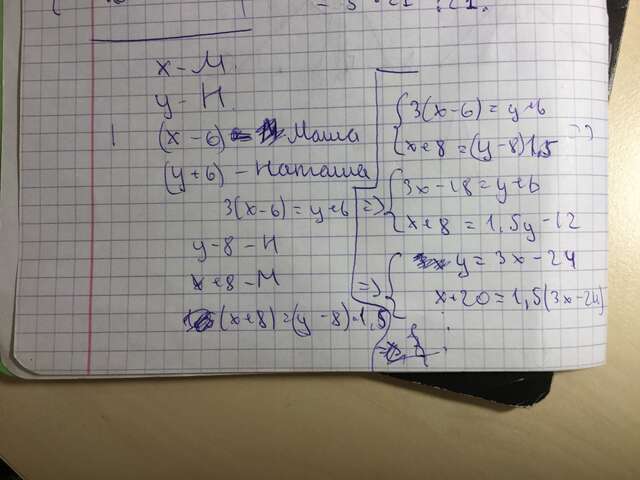 - 3 · 21 · 21.
x - М.
y - Н.
1 (x - 6) - Маша
(y + 6) - Наташа
3(x - 6) = y + 6
y - 8 - Н
x + 8 - М
(x + 8) = (y - 8) · 1,5
{ 3(x - 6) = y + 6
x + 8 = (y - 8) 1,5 =>
=> { 3x - 18 = y + 6
x + 8 = 1,5y - 12
=> { y = 3x - 24
x + 20 = 1,5(3x - 24)